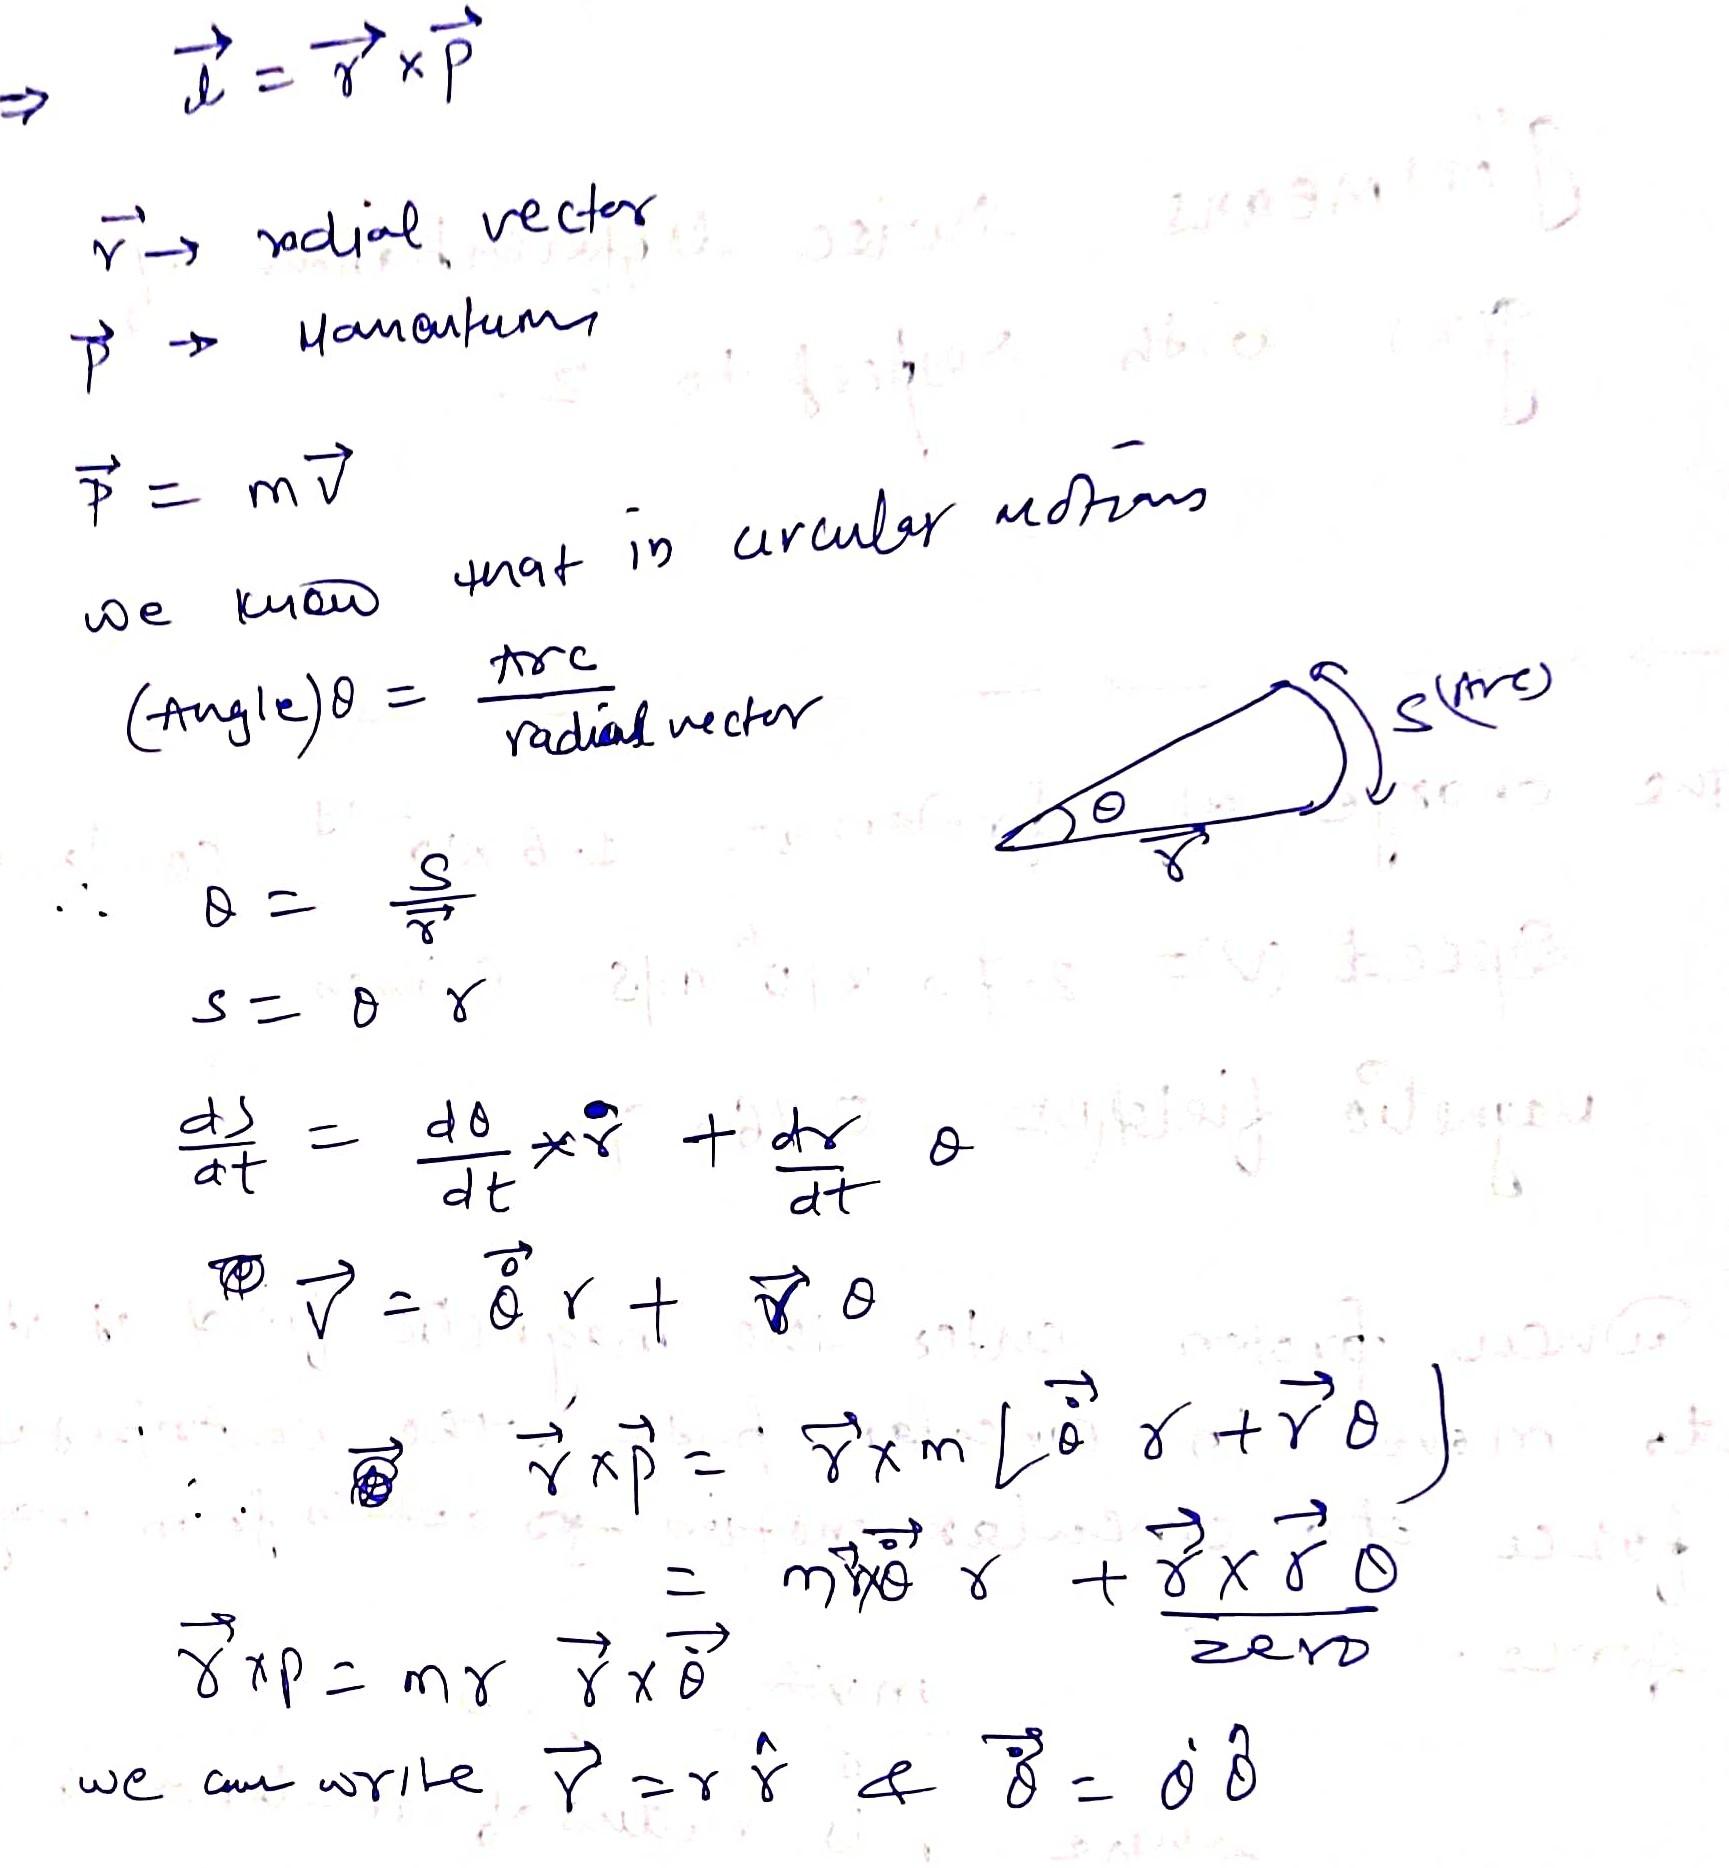 ⇒ l⃗ = r⃗ × p⃗
r⃗ → radial vector
p⃗ → Momentum
p⃗ = mv⃗
we know that in circular motions
(Angle) θ = Arc / radial vector
S(Arc)
θ
r⃗
∴ θ = S / r⃗
s = θ r
ds/dt = dθ/dt × r + dr/dt θ
v⃗ = θ̇⃗ r + r⃗ θ
∴ r⃗ × p⃗ = r⃗ × m [θ̇⃗ r + r⃗ θ]
= m r⃗ × θ̇⃗ r + r⃗ × r⃗ θ
zero
r⃗ × p = mr r⃗ × θ̇⃗
we can write r⃗ = r r̂ & θ̇⃗ = θ̇ θ̂